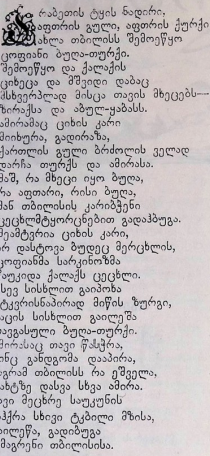 რაბეთის ტყის ნადირი,
აფთრის გული, აფთრის ქურქი
ახლა თბილისს შემოეწყო
ცოფიანი ბუღა-თურქი.
შემოეწყო და ქალაქის
ციხეცა და მშვიდი დაბაც
მსხვერპლად მისცა თავის მხეცებს—
ზირაქსა და აბულ-ყაბასს.
ამირამაც ციხის კარი
მიიხურა, გადირაზა,
ქართლის გული ბრძოლის ველად
დარჩა თურქს და ამირასა.
მაშ, რა მხეცი იყო ბუღა,
რა აფთარი, რისი ბუღა,
მან თბილისის კარიბჭენი
ცეცხლმტყორცნებით გადაჰბუგა.
შეამტვრია ციხის კარი,
არ დასტოვა ბუდეც მერცხლის,
ცოფიანმა სარკინოზმა
წაუკიდა ქალაქს ცეცხლი.
ისევ სისხლით გაიპოხა
მტკვრისნაპირად მიწის ზურგი,
კაცის სისხლით გაილეშა
თავგასული ბუღა-თურქი.
ამირასაც თავი წასჭრა,
ვინც განდგომა დააპირა,
მაგრამ თბილისს რა ეშველა,
ტახტზე დასვა სხვა ამირა.
თავი მეცხრე საუკუნის
აჰქრა სხივი ტკბილი მზისა,
გაილეწა, გადიბუგა
სიმაგრენი თბილისისა.